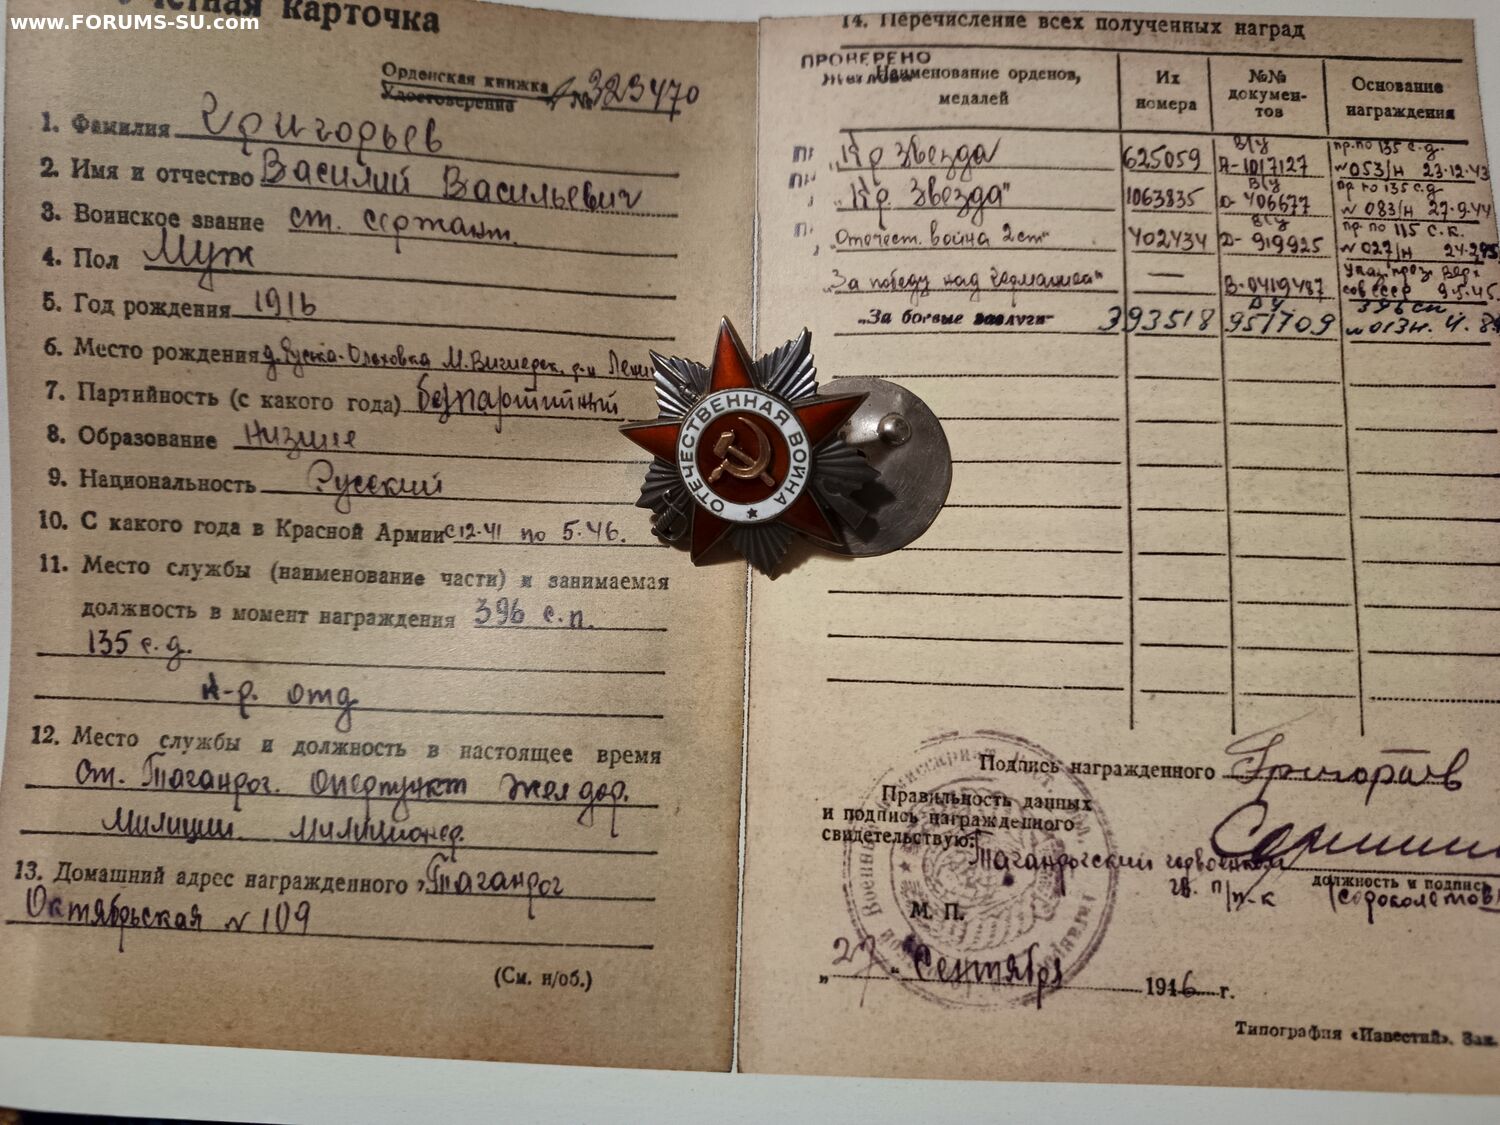 www.FORUMS-SU.com
карточка
Орденская книжка
Удостоверение № 323470
1. Фамилия Григорьев
2. Имя и отчество Василий Васильевич
3. Воинское звание ст. сержант.
4. Пол Муж
5. Год рождения 1916
6. Место рождения
7. Партийность (с какого года) безпартийный
8. Образование Низшее
9. Национальность Русский
10. С какого года в Красной Армии с 12.41 по 5.46.
11. Место службы (наименование части) и занимаемая
должность в момент награждения 396 с.п.
135 с.д.
к-р. отд
12. Место службы и должность в настоящее время
ст. Таганрог. оперпункт жел дор.
милиции. милиционер.
13. Домашний адрес награжденного г. Таганрог
Октябрьская № 109
(См. н/об.)
14. Перечисление всех полученных наград
ПРОВЕРЕНО
Наименование орденов, медалей
Их номера
№№ докумен-тов
Основание награждения
"Кр Звезда" 625059 в/у А-1017127 пр. по 135 с.д. №053/н 23.12.43
"Кр. Звезда" 1063835 в/у 406677 пр по 135 с.д № 083/н 27.9.44
"Отечест. война 2 ст" 402434 в/у Д-919925 пр. по 115 с.к. №027/н
"За победу над Германией" — В-0419487 Указ през. Верх сов СССР 9.5.45
"За боевые заслуги" 393518 ВУ 951709 396 сп
ОТЕЧЕСТВЕННАЯ ВОЙНА
Подпись награжденного Григорьев
Правильность данных
и подпись награжденного
свидетельствую:
Таганрогский горвоенком
гв. п/п-к
должность и подпись
М. П.
"27" Сентября 1946 г.
Типография «Известий». Зак.